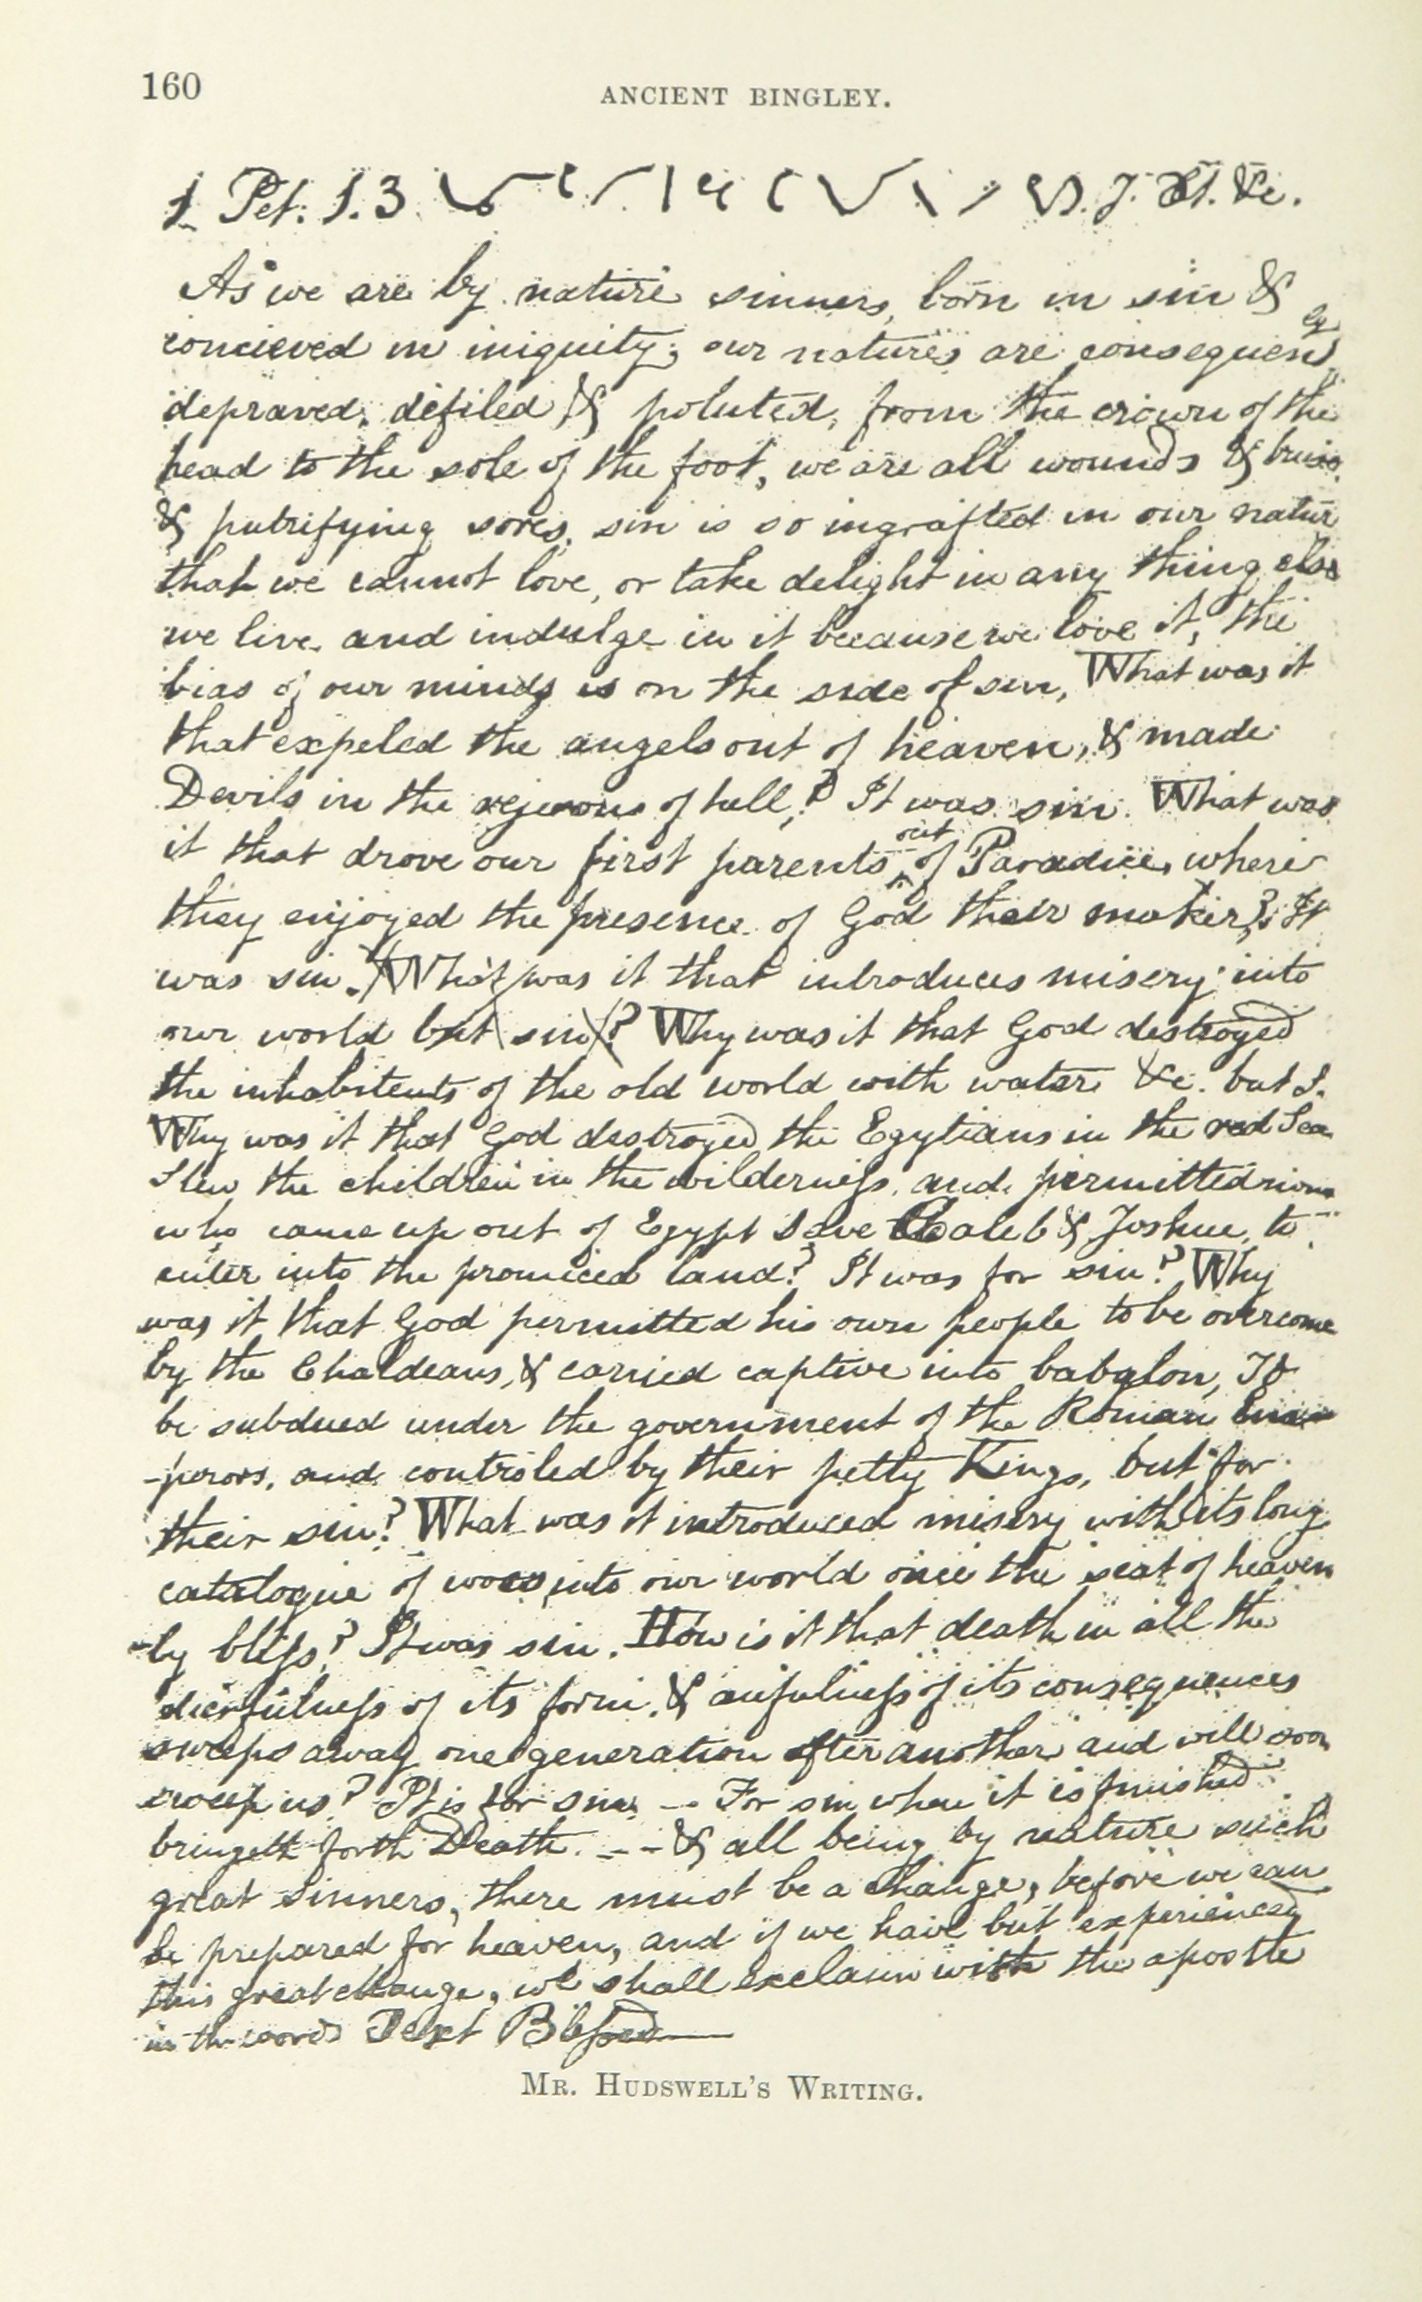 160
ANCIENT BINGLEY.
1 Pet. 1.3 J. Xt. &c.
As we are by nature sinners, born in sin &
concieved in iniquity; our natures are consequently
depraved, defiled & poluted, from the crown of the
head to the sole of the foot, we are all wounds &
& putrifying sores, sin is so ingrafted in our natur
that we cannot love, or take delight in any thing else
we live and indulge in it because we love it, the
bias of our minds is on the side of sin, What was it
that expeled the angels out of heaven, & made
Devils in the of hell,? It was sin. What was
it that drove our first parents out of Paradice, where
they enjoyed the presence of God their maker? It
was sin. What was it that introduces misery into
our world but sin? Why was it that God destroyed
the inhabitents of the old world with water &c. but S.
Why was it that God destroyed the Egytians in the red Sea
Slew the children in the wilderness, and permitted
who came up out of Egypt save Caleb & Joshue, to
enter into the promiced land? It was for sin? Why
was it that God permitted his own people to be overcome
by the Chaldeans, & carried captive into babalon, To
be subdued under the government of the Roman Em-
-perors, and controled by their petty Kings, but for
their sin? What was it introduced misery with its long
catalogue of woes, into our world once the seat of heaven
-ly bliss? It was sin. How is it that death in all the
of its form, & of its consequences
sweeps away one generation after another and will soon
sweep us? It is for sin. — For sin when it is finished
bringeth forth Death. - - & all being by nature such
great sinners, there must be a change, before we can
be prepared for heaven, and if we have but experienced
this great change, we shall exclaim with the apostle
in the words Text Blessed
MR. HUDSWELL'S WRITING.